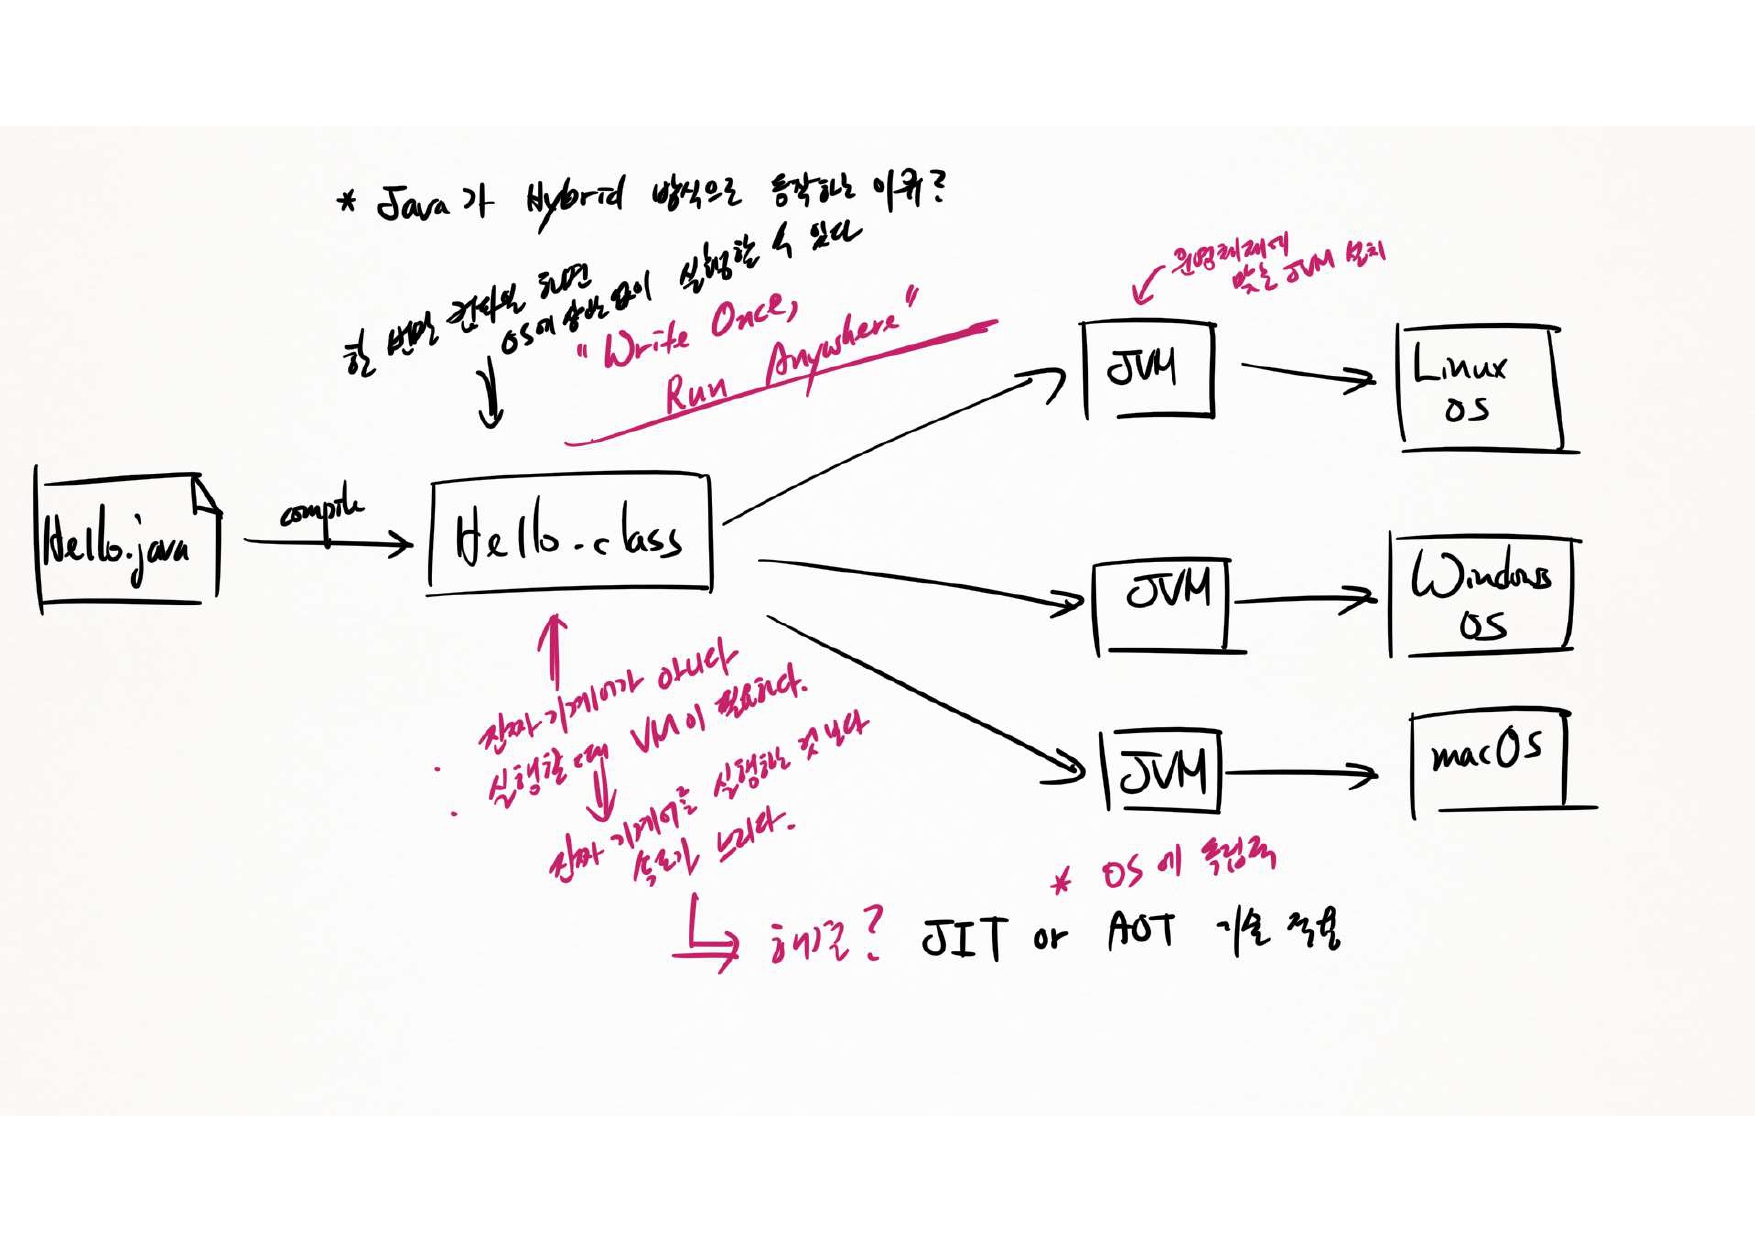 * Java가 Hybrid 방식으로 동작하는 이유?
한 번만 컴파일 하면
OS에 상관 없이 실행할 수 있다
"Write Once,
Run Anywhere"
운영체제에
맞는 JVM 설치
JVM
Linux
OS
Hello.java
compile
Hello.class
JVM
Windows
OS
진짜 기계어가 아니다
실행할 때 VM이 필요하다.
진짜 기계어를 실행하는 것 보다
속도가 느리다.
JVM
macOS
* OS에 독립적
해결? JIT or AOT 기술 적용